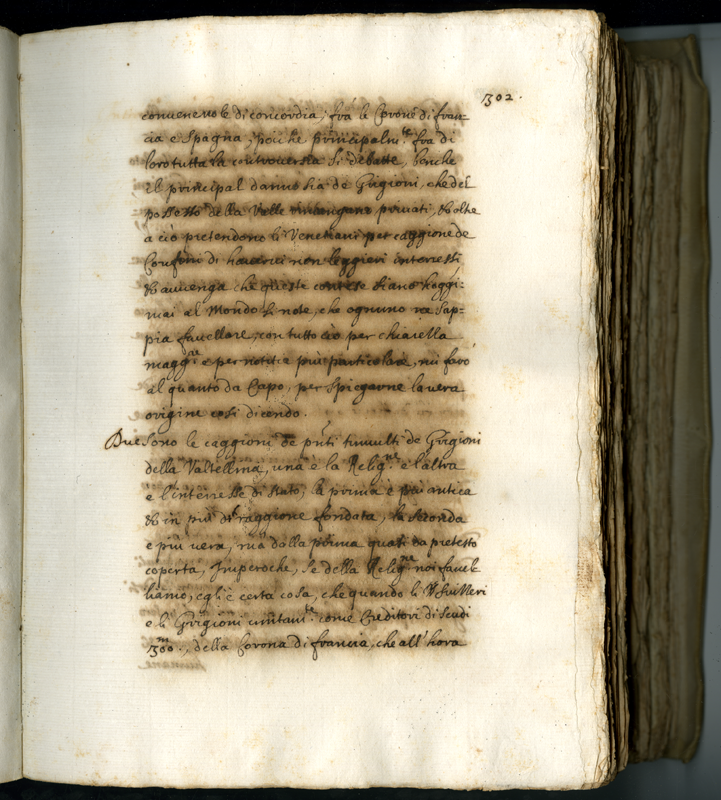 302.
convenevole di concordia, frà le Corone di fran=
cia e Spagna, poiche principalm.te fra di
loro tutta la controversia si debatte, benche
il principal danno sia de Grigioni, che del
possesso della Valle rimangano privati, et oltre
a ciò pretendono li Venetiani per caggione de
Confini di haverci non leggieri interessi,
et avvenga che queste contese siano hoggi:
mai al Mondo si note, che ognuno ne sap=
pia favellare, con tutto ciò per chiarella
magg.re e per notitie più particolari, mi farò
alquanto da Capo, per spiegarne la vera
origine così dicendo.
Due sono le caggioni de pnti tumulti de Grigioni
della Valtellina, una è la Relig.ne e l'altra
è l'interesse di stato, la prima è più antica
et in più raggione fondata, la seconda
e più vera, mà dalla prima quasi da pretesto
coperta, Imperoche, se della Relig.ne noi favel=
liamo, egl'è certa cosa, che quando li Svizzeri
e li Grigioni unitam.te come Creditori di scudi
300.m, della Corona di francia, che all'hora